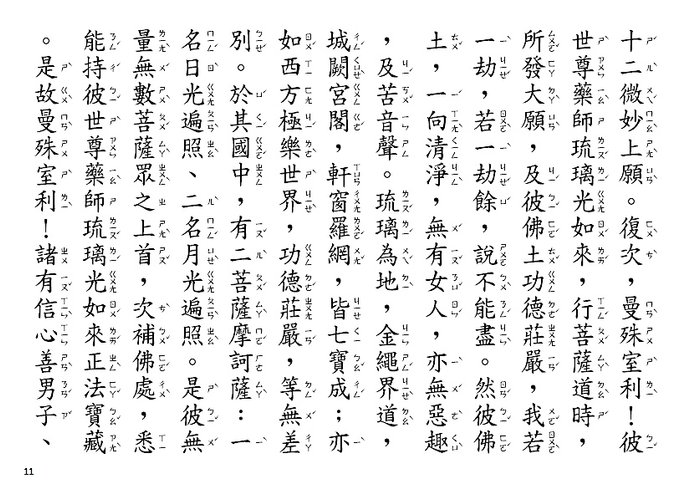 十二微妙上願。復次，曼殊室利！彼
世尊藥師琉璃光如來，行菩薩道時，
所發大願，及彼佛土功德莊嚴，我若
一劫，若一劫餘，說不能盡。然彼佛
土，一向清淨，無有女人，亦無惡趣
，及苦音聲。琉璃為地，金繩界道，
城闕宮閣，軒窗羅網，皆七寶成；亦
如西方極樂世界，功德莊嚴，等無差
別。於其國中，有二菩薩摩訶薩：一
名日光遍照、二名月光遍照。是彼無
量無數菩薩眾之上首，次補佛處，悉
能持彼世尊藥師琉璃光如來正法寶藏
。是故曼殊室利！諸有信心善男子、
11